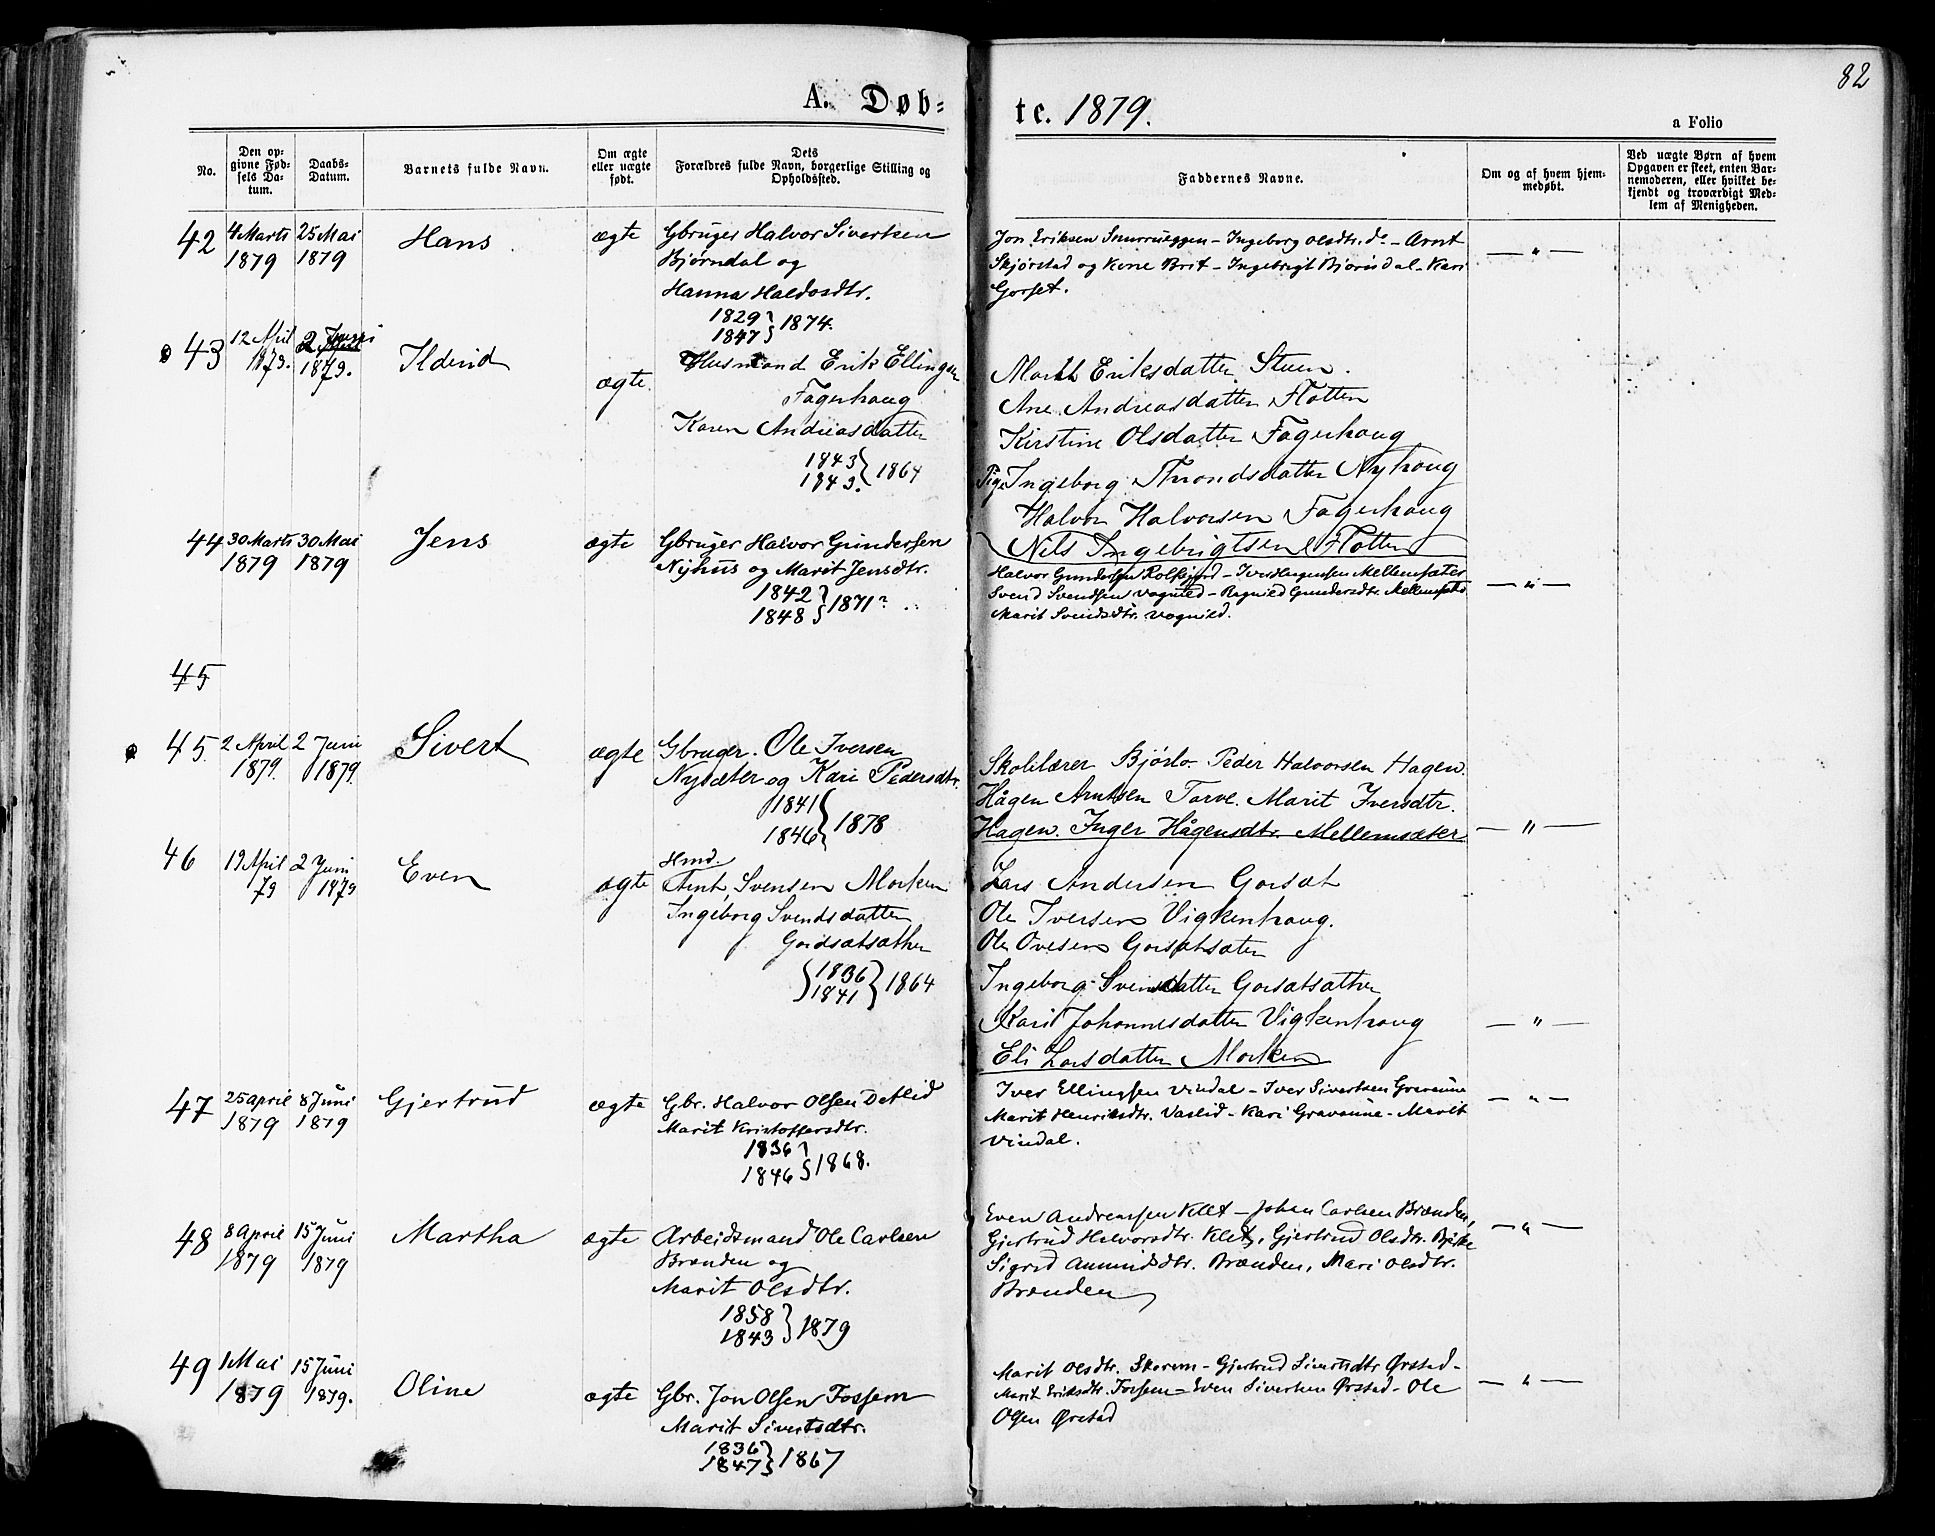 82
A. Døb-
te. 1879.
a Folio
No.
Den op-
givne Fød-
sels Da-
tum.
Daabs-
Datum.
Barnets fulde Navn.
Om ægte
eller uægte
født.
Dets
Forældres fulde Navn, borgerlige Stilling og
Opholdssted.
Faddernes Navne.
Om og af hvem hjem-
medøbt.
Ved uægte Børn af hvem
Opgaven er skeet, enten Bar-
nemoderen, eller hvilket be-
kjendt og troværdigt Med-
lem af Menigheden.
42
4 Marts
1879
25 Mai
1879
Hans
ægte
Gbruger Halvor Sivertsen
Bjørndal og
Hanna Haldosdtr.
1829
1847 } 1874.
Jon Eriksen Snurrueggen - Ingeborg Olsdtr. do - Arnt
Skjørstad og Kone Brit - Ingebrigt Bjørndal - Kari
Gorset.
— " —
43
12 April
1879.
2 Juni
1879.
Ilderid
ægte.
Husmand Erik Ellingsen
Fagerhaug
Karen Andreasdatter
1843
1843. } 1864
Marit Eriksdatter Stuen.
Ane Andreasdatter Flotten
Kirstine Olsdatter Fagerhaug
Pige Ingeborg Throndsdatter Nyhaug
Halvor Halvorsen Fagerhaug
Nils Ingebrigtsen Flotten
44
30 Marts
1879
30 Mai
1879
Jens
ægte
Gbruger Halvor Gundersen
Nyhus og Marit Jensdtr.
1842
1848 } 1871?
Halvor Gundersen Rolfsjord - Iver Hagensen Mellemsæter
Svend Svendsen Vognild - Ragnild Gundersdtr. Mellemsæter
Marit Svendsdtr. Vognild.
— " —
45
45.
2 April
1879.
2 Juni
1879
Sivert
ægte
Gbruger. Ole Iversen
Nysæter og Kari Pedersdtr.
1841
1846 } 1878
Skolelærer Bjørlo Peder Halvorsen Hagen.
Hågen Arntsen Tørve. Marit Iversdtr.
Hagen. Inger Hågensdtr. Mellemsæter
— " —
46
19 April
79
2 Juni
1879
Even
ægte
Hmd.
Arnt Svensen Morken
Ingeborg Svendsdatter
Gordsætsæther
1836
1841 } 1864
Lars Andersen Gorsæt
Ole Iversen Vigkenhaug.
Ole Ovesen Gorsætsæter
Ingeborg Svensdatter Gorsætsæther
Kari Johannesdatter Vigkenhaug
Eli Larsdatter Morken
— " —
47
25 April
1879
8 Juni
1879
Gjertrud
ægte
Gbr. Halvor Olsen Detlid
Marit Kristoffersdtr.
1836
1846 } 1868.
Iver Ellingsen Vindal - Iver Sivertsen Gravaune
Marit Henriksdtr. Vaslid - Kari Gravaune - Marit
Vindal.
— " —
48
8 April
1879
15 Juni
1879
Martha
ægte
Arbeidsmand Ole Carlsen
Brænden og
Marit Olsdtr.
1858
1843 } 1879
Even Andreassen Klet - Johan Carlsen Brænden,
Gjertrud Halvorsdtr. Klet, Gjertrud Olsdtr. Bjerke
Sigrid Amundsdtr. Brænden, Mari Olsdtr.
Brænden
— " —
49
1 Mai
1879
15 Juni
1879.
Oline
ægte
Gbr. Jon Olsen Fossem
Marit Sivertsdtr.
1836
1847 } 1867
Marit Olsdtr. Skorem - Gjertrud Sivertsdtr Ørstad -
Marit Eriksdtr. Fossem - Even Sivertsen Ørstad - Ole
Olsen Ørstad
— " —